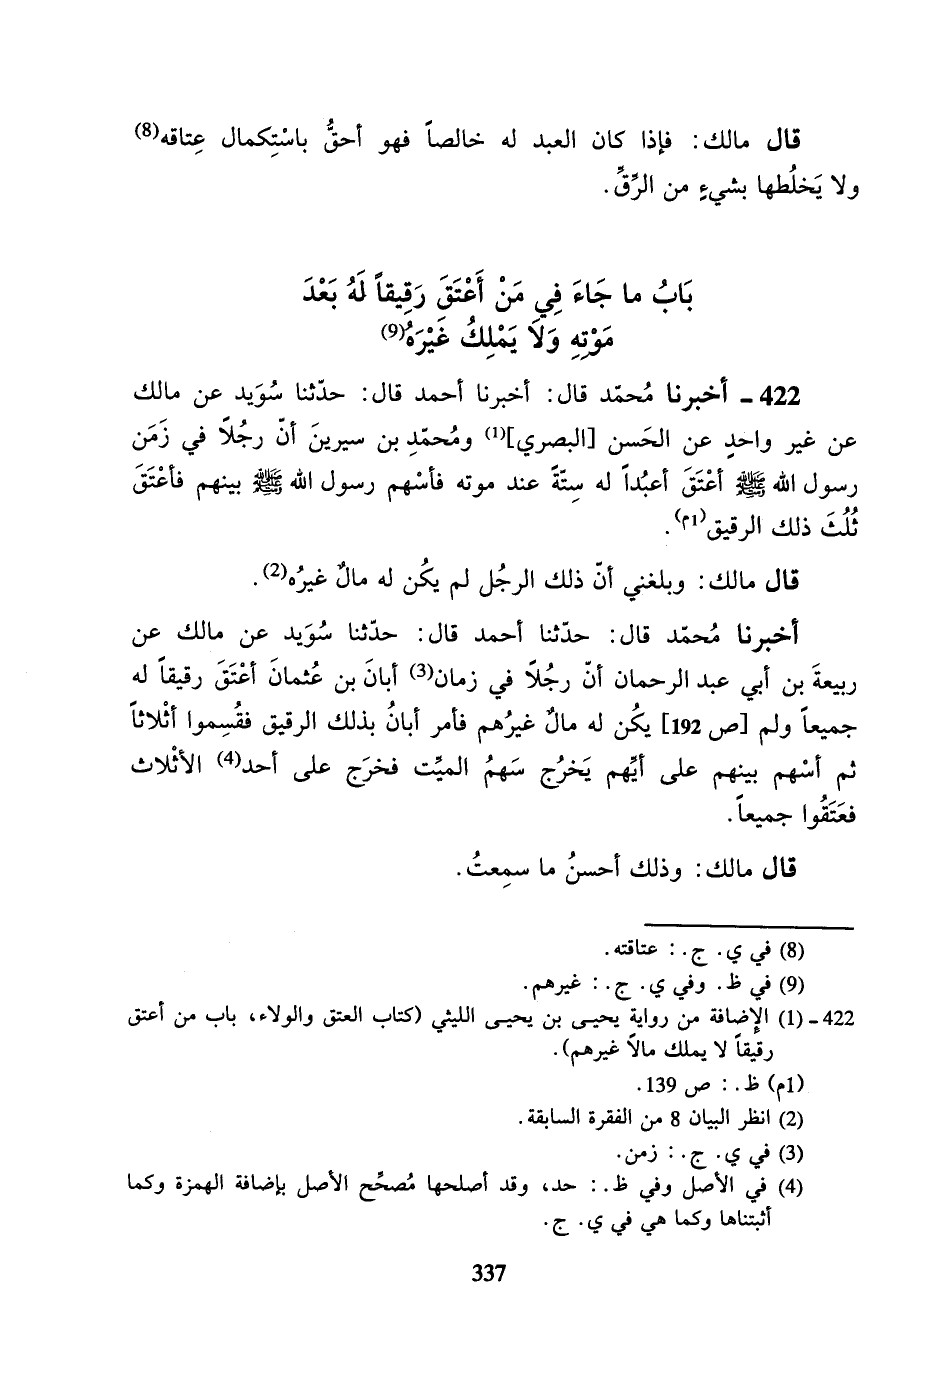 قال مالك: فإذا كان العبد له خالصاً فهو أحقُّ باسْتِكمال عِتاقه(8)
ولا يَخلُطها بشيءٍ من الرِّقِّ.
بَابُ ما جَاءَ فِي مَنْ أَعْتَقَ رَقِيقاً لَهُ بَعْدَ
مَوْتِهِ وَلَا يَمْلِكُ غَيْرَهُ(9)
422 ـ أخبرنا مُحمّد قال: أخبرنا أحمد قال: حدّثنا سُوَيد عن مالك
عن غير واحدٍ عن الحَسن [البصري](1) ومُحمّدِ بن سيرينَ أنّ رجُلاً في زَمَن
رسول الله ﷺ أعْتَقَ أعبُداً له سِتّةً عند موته فأسْهم رسول الله ﷺ بينهم فأعْتَقَ
ثُلُثَ ذلك الرقيق(1م).
قال مالك: وبلغني أنّ ذلك الرجُل لم يكُن له مالٌ غيرُه(2).
أخبرنا مُحمّد قال: حدّثنا أحمد قال: حدّثنا سُوَيد عن مالك عن
ربيعةَ بن أبي عبد الرحمان أنّ رجُلاً في زمان(3) أبانَ بن عُثمانَ أعْتَقَ رقيقاً له
جميعاً ولم [ص 192] يكُن له مالٌ غيرُهم فأمر أبانُ بذلك الرقيق فقُسِموا أثْلاثاً
ثم أسْهم بينهم على أيِّهم يَخرُج سَهمُ الميِّت فخرَج على أحد(4) الأثْلاث
فعَتَقُوا جميعاً.
قال مالك: وذلك أحسنُ ما سمِعتُ.
(8) في ي. ج.: عتاقته.
(9) في ظ. وفي ي. ج.: غيرهم.
422 ـ (1) الإضافة من رواية يحيى بن يحيى الليثي (كتاب العتق والولاء، باب من أعتق
رقيقاً لا يملك مالاً غيرهم).
(1م) ظ.: ص 139.
(2) انظر البيان 8 من الفقرة السابقة.
(3) في ي. ج.: زمن.
(4) في الأصل وفي ظ.: حد، وقد أصلحها مُصحِّح الأصل بإضافة الهمزة وكما
أثبتناها وكما هي في ي. ج.
337